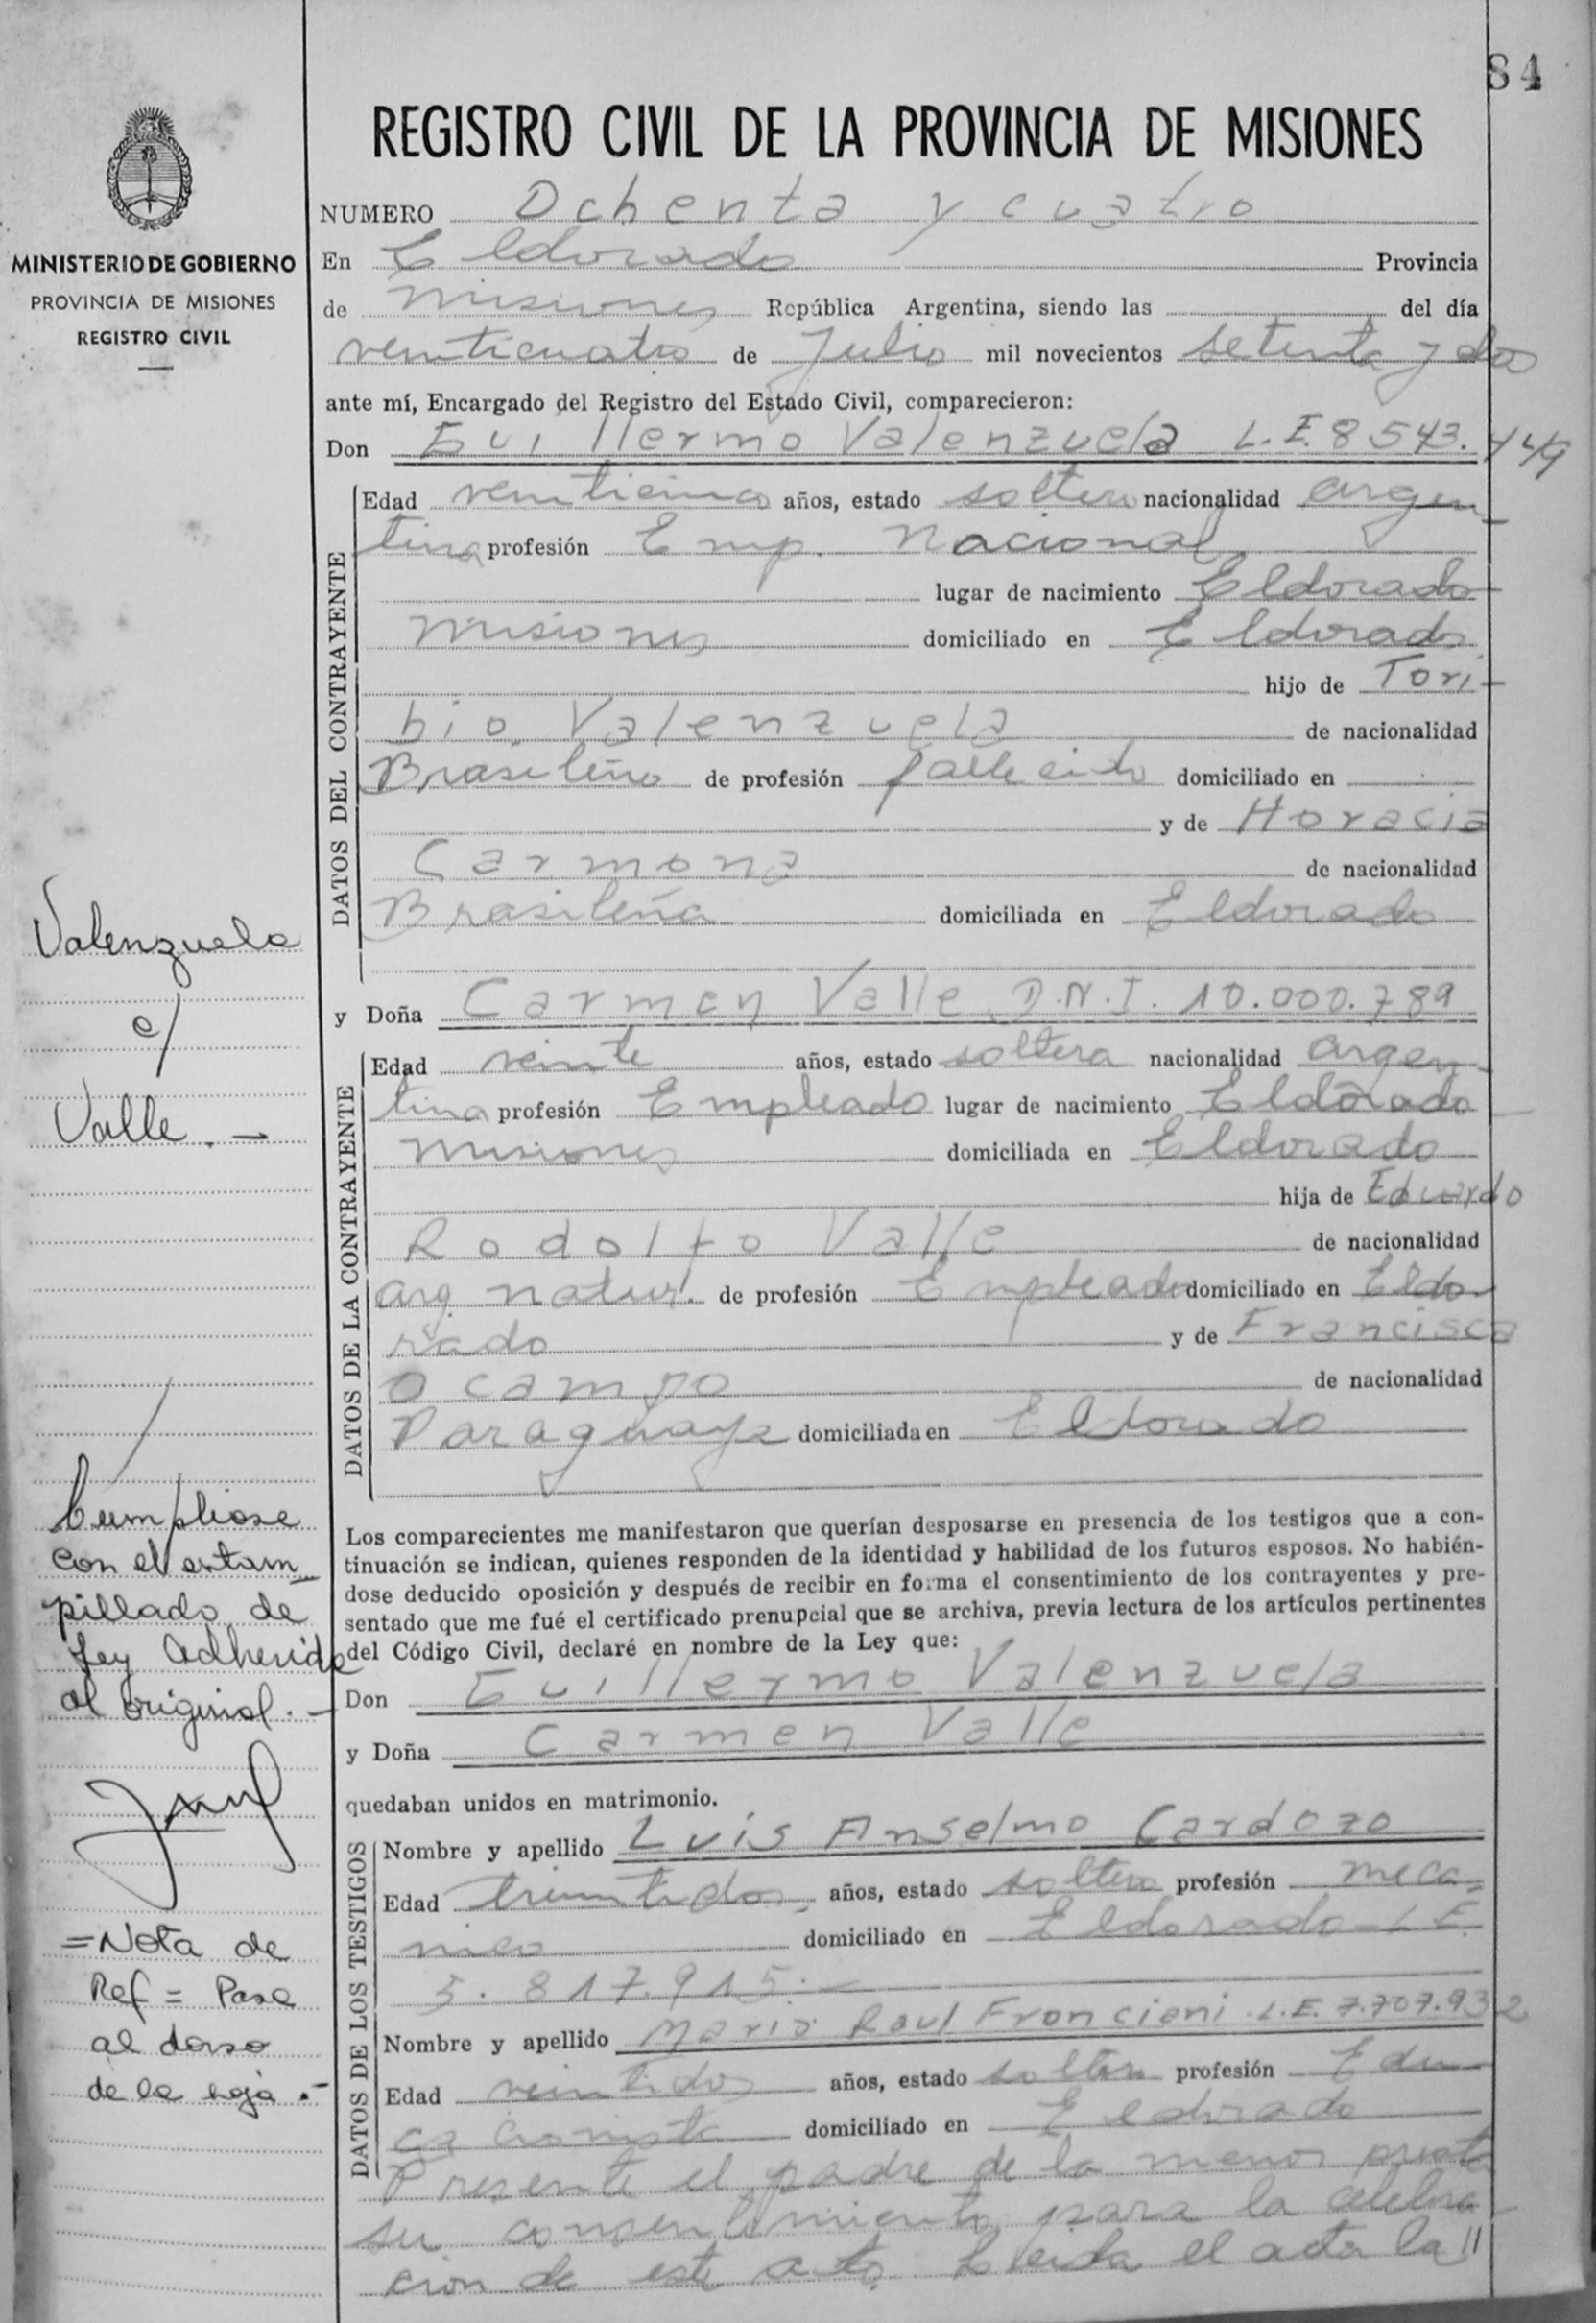 84
REGISTRO CIVIL DE LA PROVINCIA DE MISIONES
MINISTERIO DE GOBIERNO
PROVINCIA DE MISIONES
REGISTRO CIVIL
NUMERO Ochenta y cuatro
En Eldorado Provincia
de Misiones República Argentina, siendo las del día
veinticuatro de Julio mil novecientos setenta y dos
ante mí, Encargado del Registro del Estado Civil, comparecieron:
Don Guillermo Valenzuela L.E. 8543.449
DATOS DEL CONTRAYENTE
Edad veinticinco años, estado soltero nacionalidad argen-
tina profesión Emp. Nacional
lugar de nacimiento Eldorado
Misiones domiciliado en Eldorado
hijo de Tori-
bio Valenzuela de nacionalidad
Brasileño de profesión fallecido domiciliado en
y de Horacia
Carmona de nacionalidad
Brasileña domiciliada en Eldorado
Valenzuela
c/
Valle.-
y Doña Carmen Valle D.N.I. 10.000.789
DATOS DE LA CONTRAYENTE
Edad veinte años, estado soltera nacionalidad argen-
tina profesión Empleado lugar de nacimiento Eldorado
Misiones domiciliada en Eldorado
hija de Eduardo
Rodolfo Valle de nacionalidad
arg natur. de profesión Empleado domiciliado en Eldo-
rado y de Francisca
Ocampo de nacionalidad
Paraguaya domiciliada en Eldorado
Cumpliose
con el estam-
pillado de
Ley adherido
al original.-
Los comparecientes me manifestaron que querían desposarse en presencia de los testigos que a con-
tinuación se indican, quienes responden de la identidad y habilidad de los futuros esposos. No habién-
dose deducido oposición y después de recibir en forma el consentimiento de los contrayentes y pre-
sentado que me fué el certificado prenupcial que se archiva, previa lectura de los artículos pertinentes
del Código Civil, declaré en nombre de la Ley que:
Don Guillermo Valenzuela
y Doña Carmen Valle
quedaban unidos en matrimonio.
DATOS DE LOS TESTIGOS
Nombre y apellido Luis Anselmo Cardozo
Edad treintidos años, estado soltero profesión meca-
nico domiciliado en Eldorado - L E.
5.817.915.-
Nombre y apellido Mario Raul Froncieni L.E. 7.707.932
Edad veintidos años, estado soltero profesión Edu-
cacionista domiciliado en Eldorado
Presente el padre de la menor presta
su consentimiento para la celebra-
cion de este acto. Leida el acta la //
=Nota de
Ref = Pase
al dorso
de la hoja.-